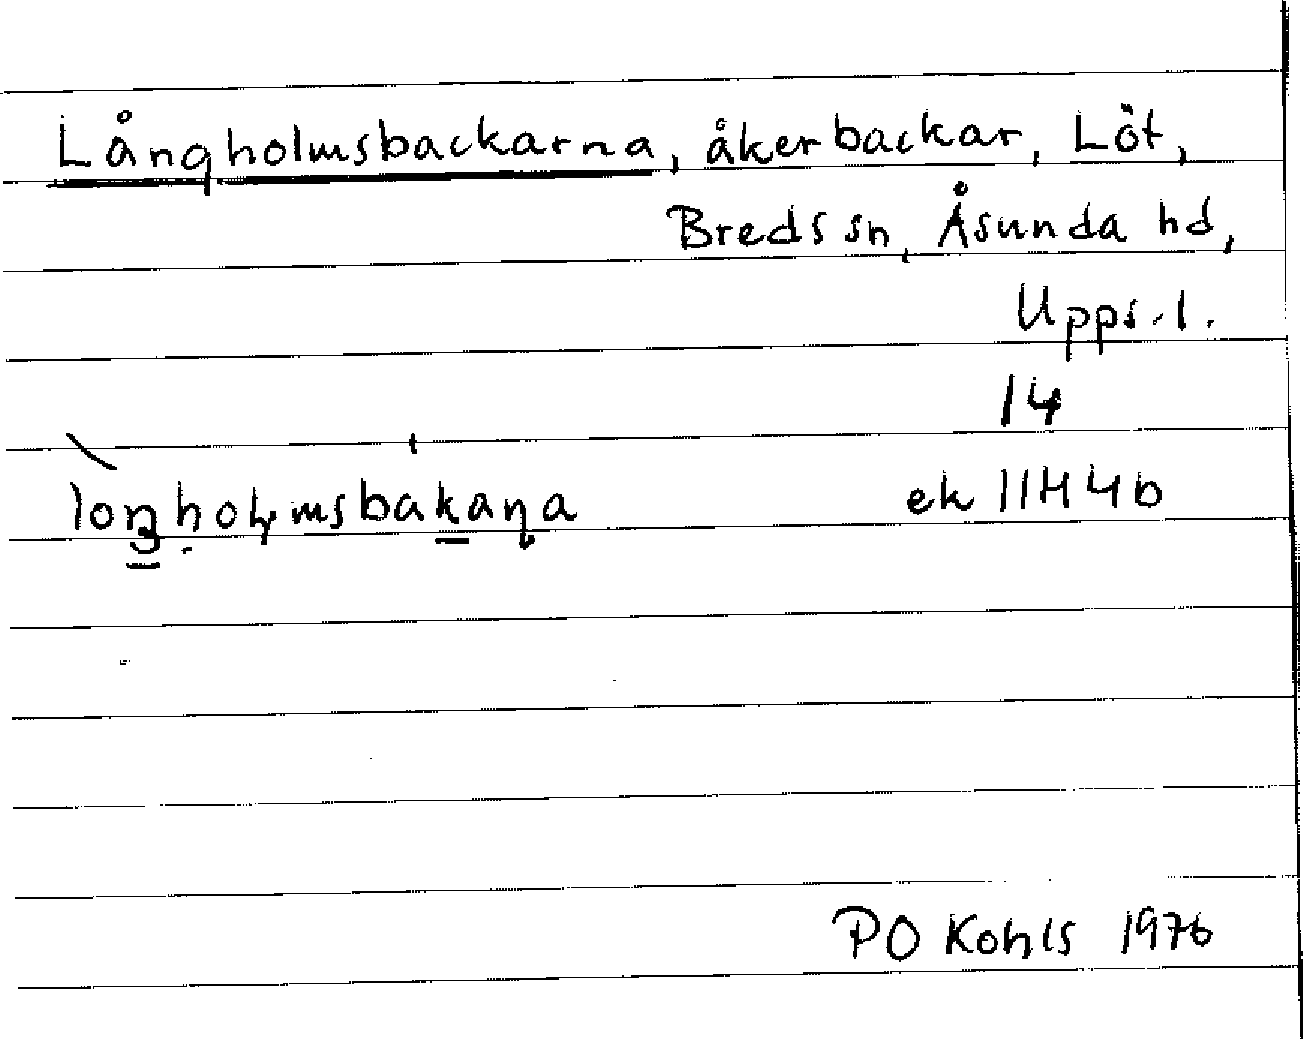 Långholmsbackarna, åkerbackar, Löt,
Breds sn, Åsunda hd,
Upps. l.
14
ek 11H4b
PO Kohls 1976